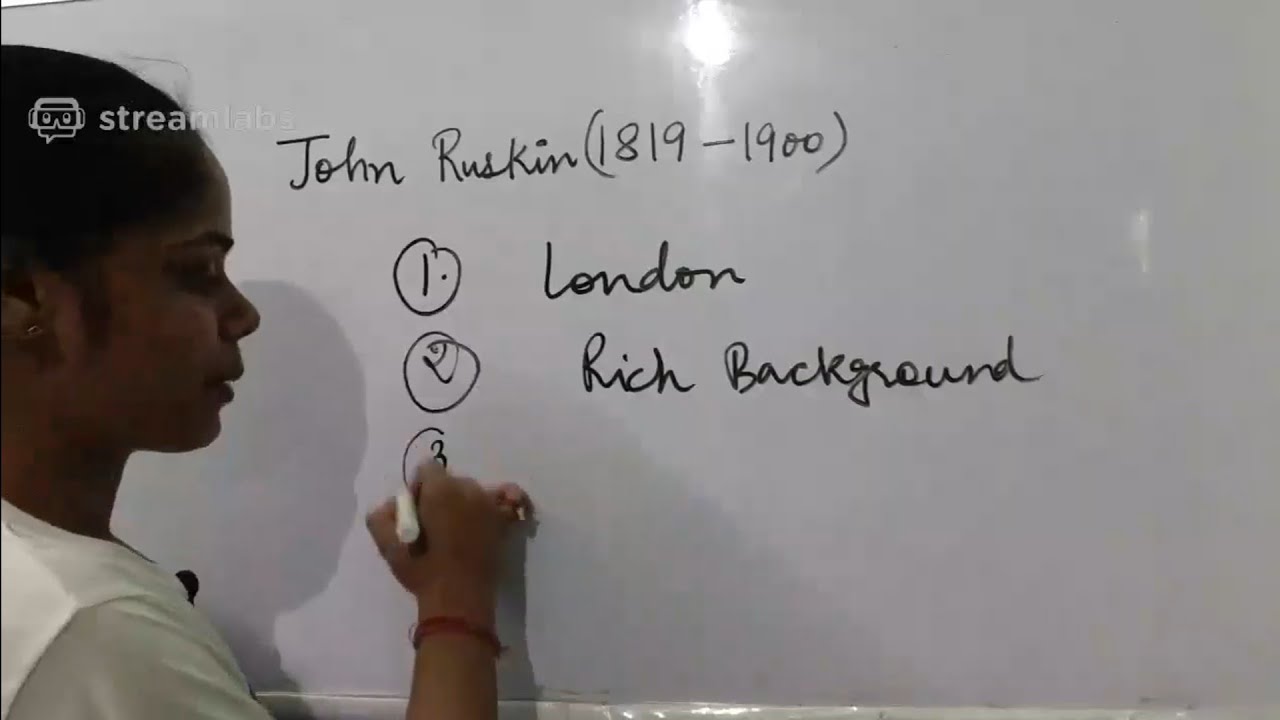 streamlabs
John Ruskin (1819-1900)
1. London
२ Rich Background
3